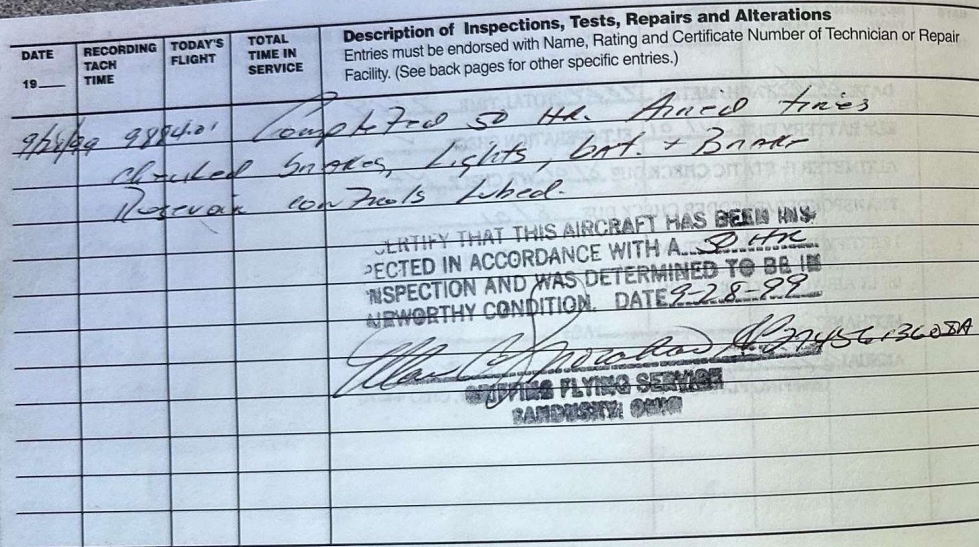 DATE
19
RECORDING
TACH
TIME
TODAY'S
FLIGHT
TOTAL
TIME IN
SERVICE
Description of Inspections, Tests, Repairs and Alterations
Entries must be endorsed with Name, Rating and Certificate Number of Technician or Repair
Facility. (See back pages for other specific entries.)
9/28/99 9884.01 Completed 50 Hr. Aired tires
checked Brakes, Lights, bat. + Brake
Reservoir controls Lubed.
CERTIFY THAT THIS AIRCRAFT HAS BEEN INS-
PECTED IN ACCORDANCE WITH A 50 HR
INSPECTION AND WAS DETERMINED TO BE IN
AIRWORTHY CONDITION. DATE 9-28-99
GRIFFING FLYING SERVICE
SANDUSKY, OHIO